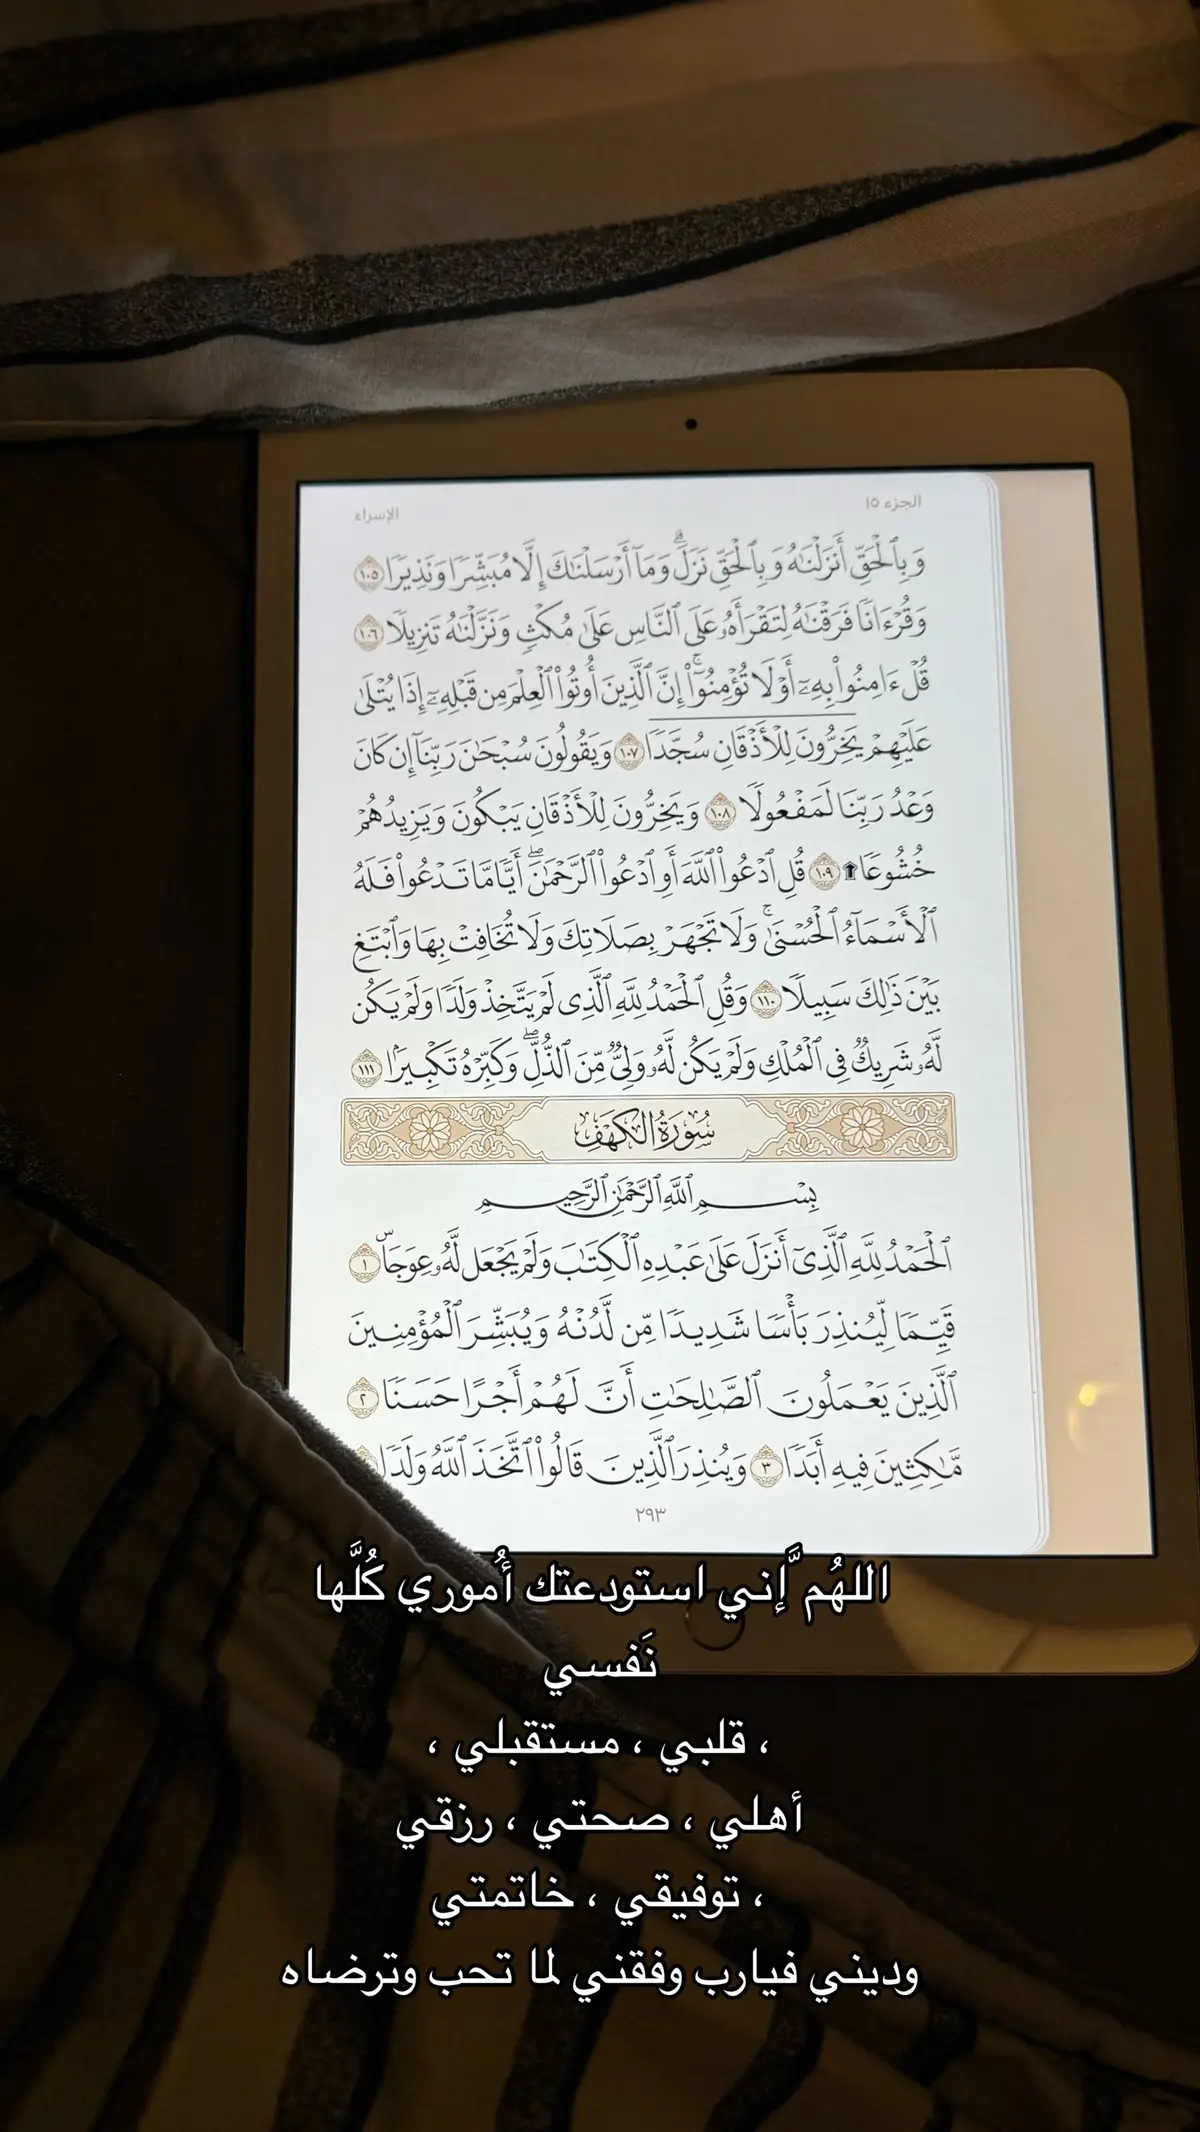 الجزء ١٥
الإسراء
وَبِٱلْحَقِّ أَنزَلْنَـٰهُ وَبِٱلْحَقِّ نَزَلَ ۗ وَمَآ أَرْسَلْنَـٰكَ إِلَّا مُبَشِّرًا وَنَذِيرًا ١٠٥
وَقُرْءَانًا فَرَقْنَـٰهُ لِتَقْرَأَهُۥ عَلَى ٱلنَّاسِ عَلَىٰ مُكْثٍ وَنَزَّلْنَـٰهُ تَنزِيلًا ١٠٦
قُلْ ءَامِنُوا۟ بِهِۦٓ أَوْ لَا تُؤْمِنُوٓا۟ ۚ إِنَّ ٱلَّذِينَ أُوتُوا۟ ٱلْعِلْمَ مِن قَبْلِهِۦٓ إِذَا يُتْلَىٰ
عَلَيْهِمْ يَخِرُّونَ لِلْأَذْقَانِ سُجَّدًا ١٠٧ وَيَقُولُونَ سُبْحَـٰنَ رَبِّنَآ إِن كَانَ
وَعْدُ رَبِّنَا لَمَفْعُولًا ١٠٨ وَيَخِرُّونَ لِلْأَذْقَانِ يَبْكُونَ وَيَزِيدُهُمْ
خُشُوعًا ۩ ١٠٩ قُلِ ٱدْعُوا۟ ٱللَّهَ أَوِ ٱدْعُوا۟ ٱلرَّحْمَـٰنَ ۖ أَيًّا مَّا تَدْعُوا۟ فَلَهُ
ٱلْأَسْمَآءُ ٱلْحُسْنَىٰ ۚ وَلَا تَجْهَرْ بِصَلَاتِكَ وَلَا تُخَافِتْ بِهَا وَٱبْتَغِ
بَيْنَ ذَٰلِكَ سَبِيلًا ١١٠ وَقُلِ ٱلْحَمْدُ لِلَّهِ ٱلَّذِى لَمْ يَتَّخِذْ وَلَدًا وَلَمْ يَكُن
لَّهُۥ شَرِيكٌ فِى ٱلْمُلْكِ وَلَمْ يَكُن لَّهُۥ وَلِىٌّ مِّنَ ٱلذُّلِّ ۖ وَكَبِّرْهُ تَكْبِيرًۢا ١١١
سُورَةُ ٱلْكَهْفِ
بِسْمِ ٱللَّهِ ٱلرَّحْمَـٰنِ ٱلرَّحِيمِ
ٱلْحَمْدُ لِلَّهِ ٱلَّذِىٓ أَنزَلَ عَلَىٰ عَبْدِهِ ٱلْكِتَـٰبَ وَلَمْ يَجْعَل لَّهُۥ عِوَجَاۜ ١
قَيِّمًا لِّيُنذِرَ بَأْسًا شَدِيدًا مِّن لَّدُنْهُ وَيُبَشِّرَ ٱلْمُؤْمِنِينَ
ٱلَّذِينَ يَعْمَلُونَ ٱلصَّـٰلِحَـٰتِ أَنَّ لَهُمْ أَجْرًا حَسَنًا ٢
مَّـٰكِثِينَ فِيهِ أَبَدًا ٣ وَيُنذِرَ ٱلَّذِينَ قَالُوا۟ ٱتَّخَذَ ٱللَّهُ وَلَدًا
٢٩٣
اللهُم َّإني استودعتك أُموري كُلَّها
نَفسي
، قلبي ، مستقبلي ،
أهلي ، صحتي ، رزقي
، توفيقي ، خاتمتي
وديني فيارب وفقني لما تحب وترضاه